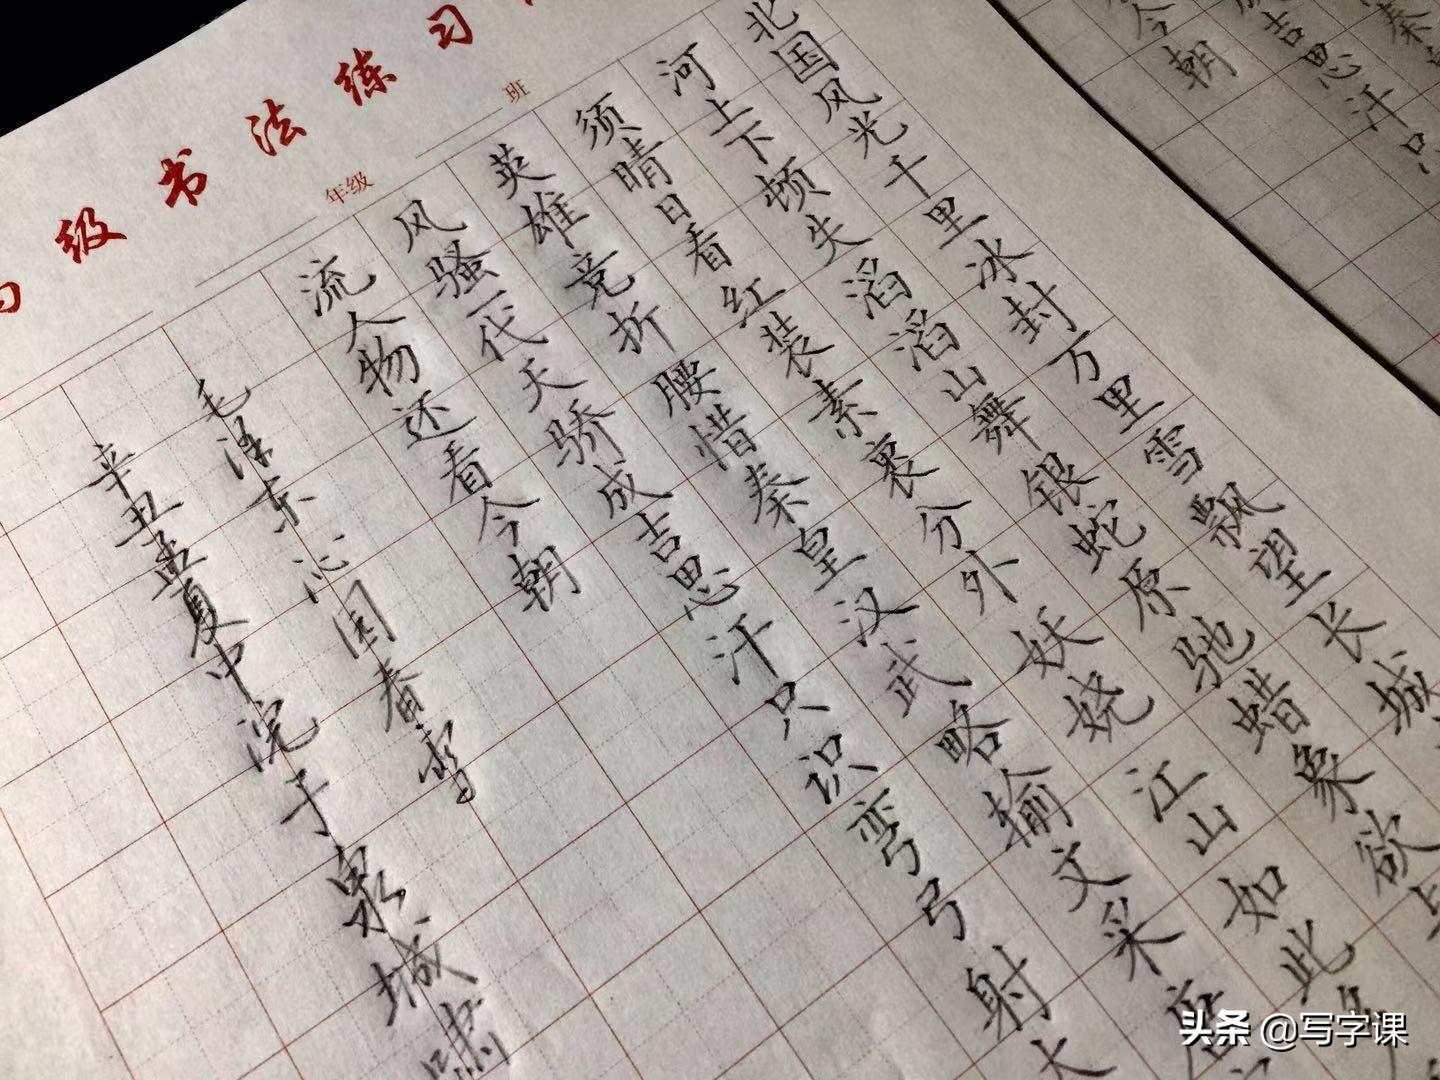 级书法练习
年级 班
北国风光千里冰封万里雪飘望长城
河上下顿失滔滔山舞银蛇原驰蜡象欲与
须晴日看红装素裹分外妖娆江山如此
英雄竞折腰惜秦皇汉武略输文采唐
风骚一代天骄成吉思汗只识弯弓射大
流人物还看今朝
毛泽东沁园春雪
辛丑孟夏中浣于泉城啸
秦
吉思汗只
今朝
头条 @写字课